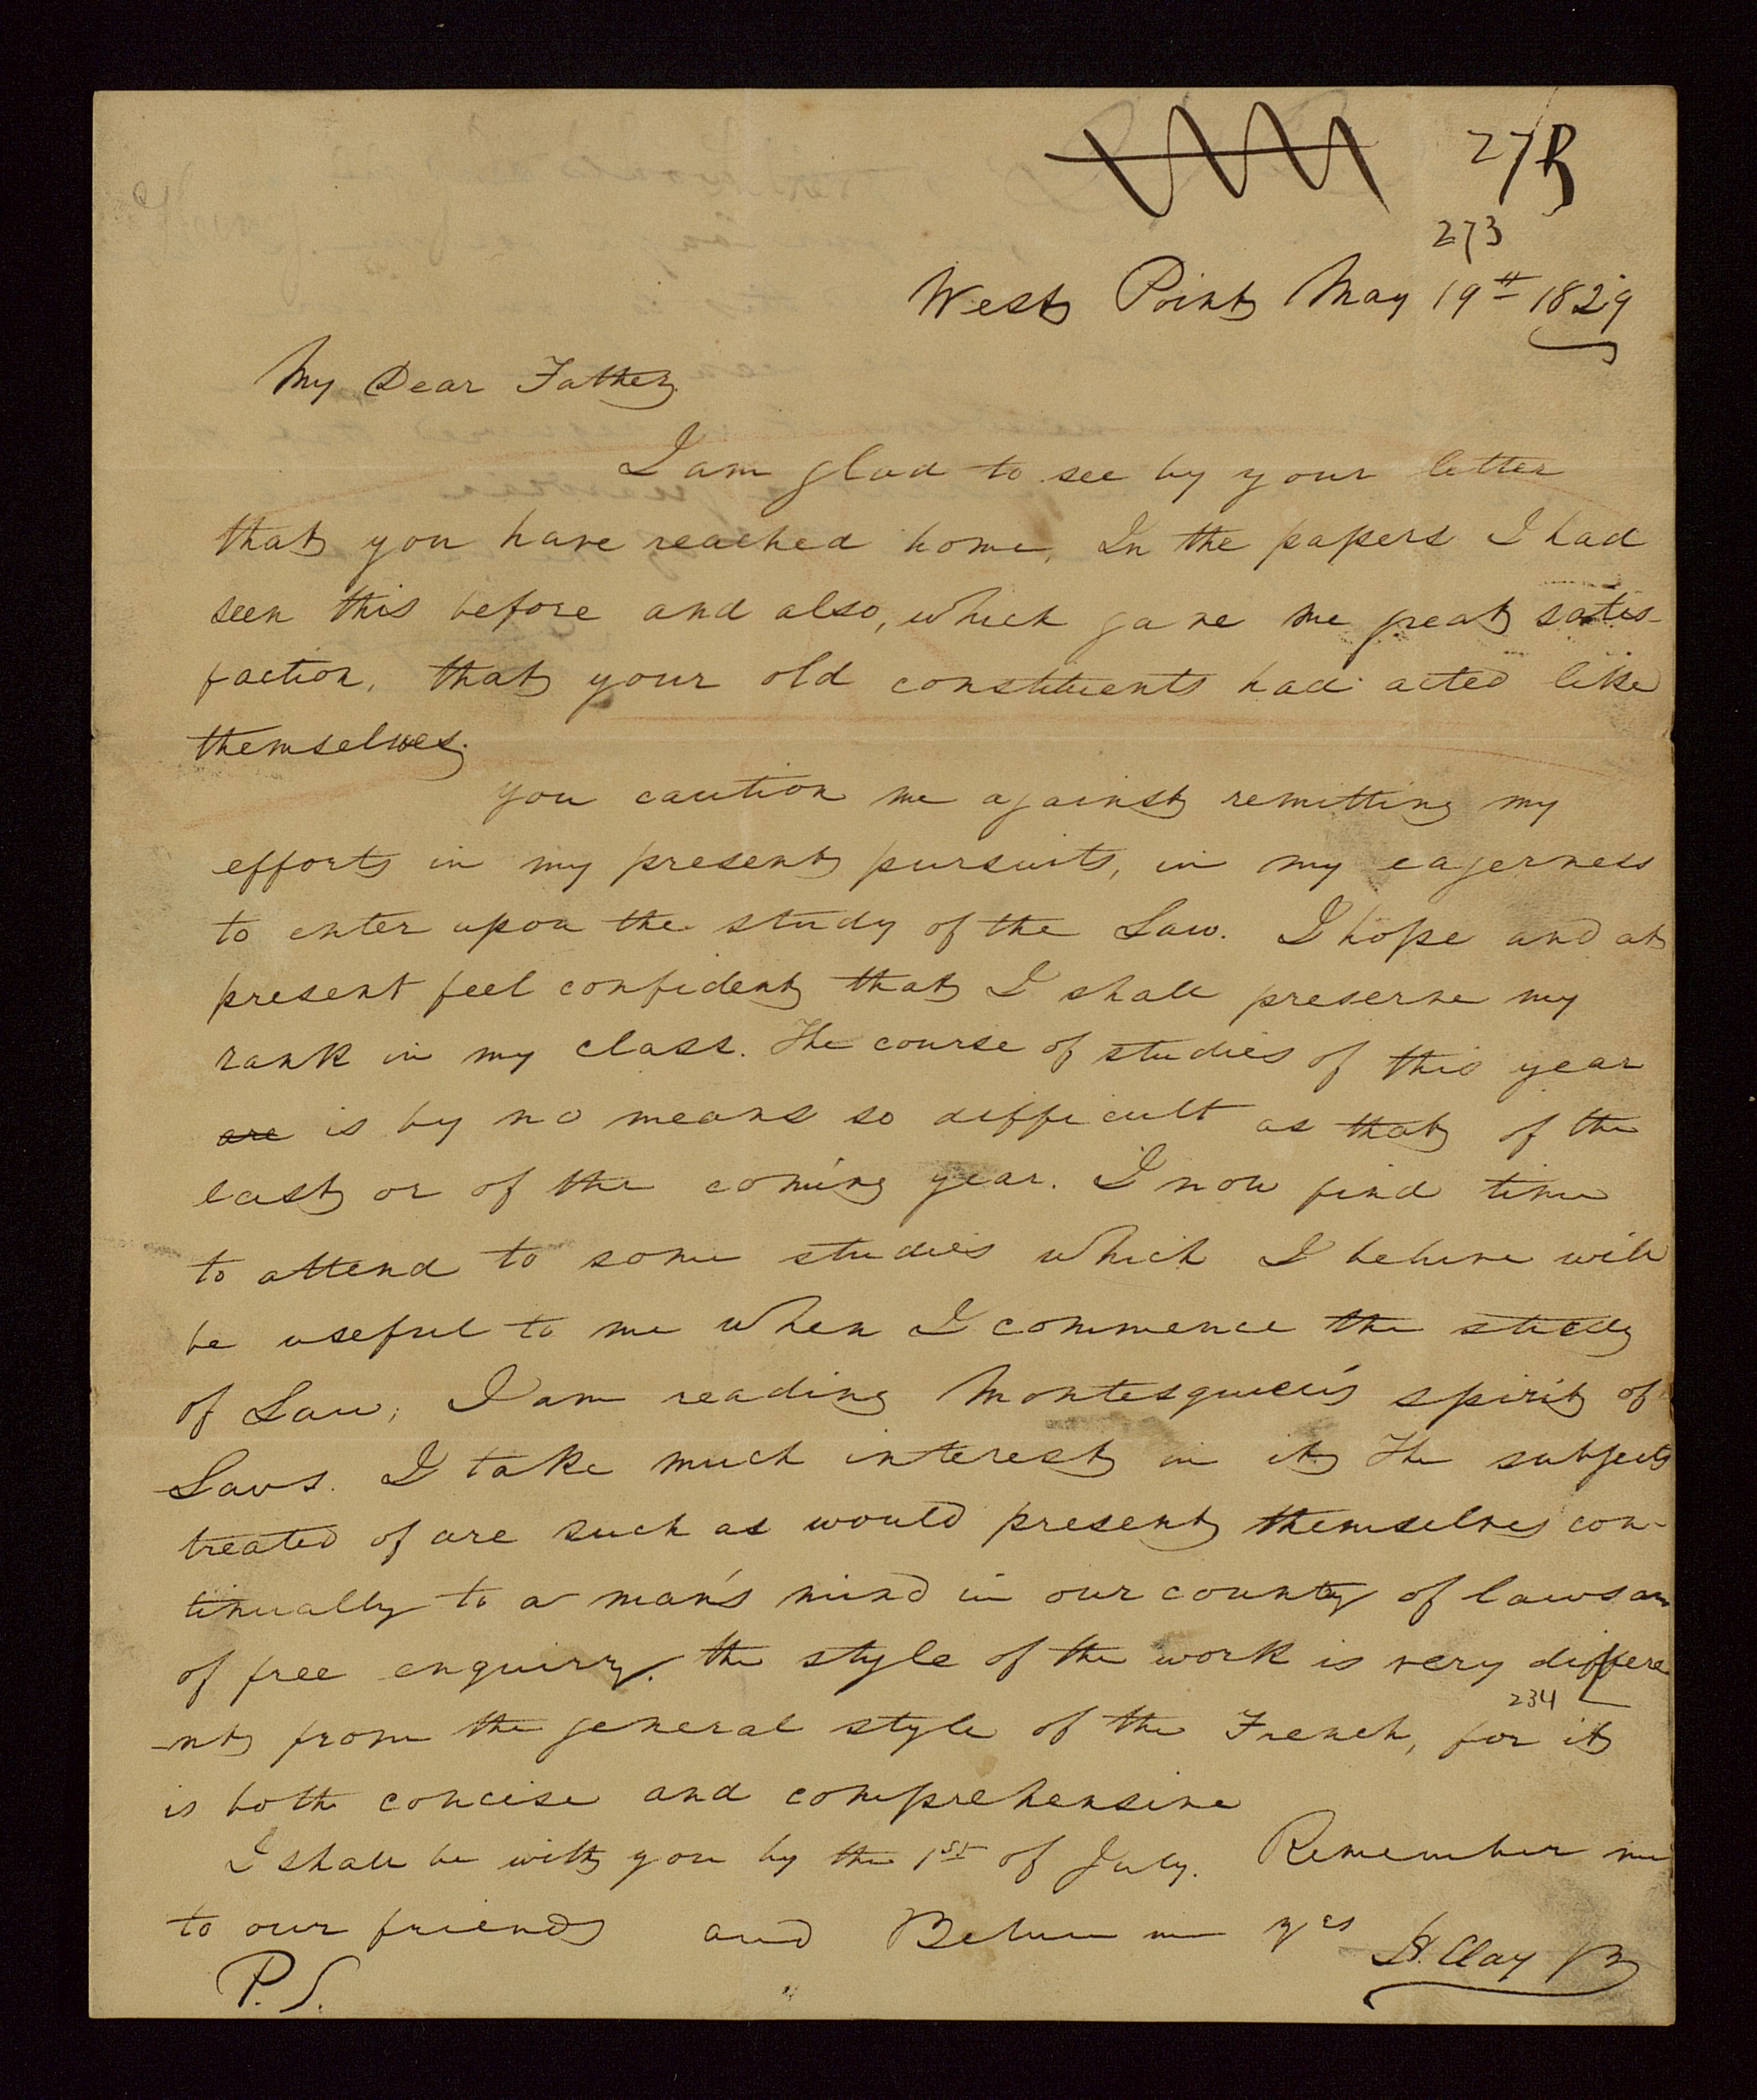 27
273
West Point May 19th 1829
My Dear Father
I am glad to see by your letter
that you have reached home, In the papers I had
seen this before and also, which gave me great satis-
faction, that your old constituents had acted like
themselves.
you caution me against remitting my
efforts in my present pursuits, in my eagerness
to enter upon the study of the Law. I hope and at
present feel confident that I shall preserve my
rank in my class. The course of studies of this year
are is by no means so difficult as that of the
last or of the coming year. I now find time
to attend to some studies which I believe will
be useful to me when I commence the study
of Law; I am reading Montesquieu's spirit of
Laws. I take much interest in it, The subjects
treated of are such as would present themselves con-
tinually to a man's mind in our country of laws an
of free enquiry. the style of the work is very differe
234
-nt from the general style of the French, for it
is both concise and comprehensive
I shall be with you by the 1st of July. Remember me
to our friends and Believe me yrs H. Clay
P.S.